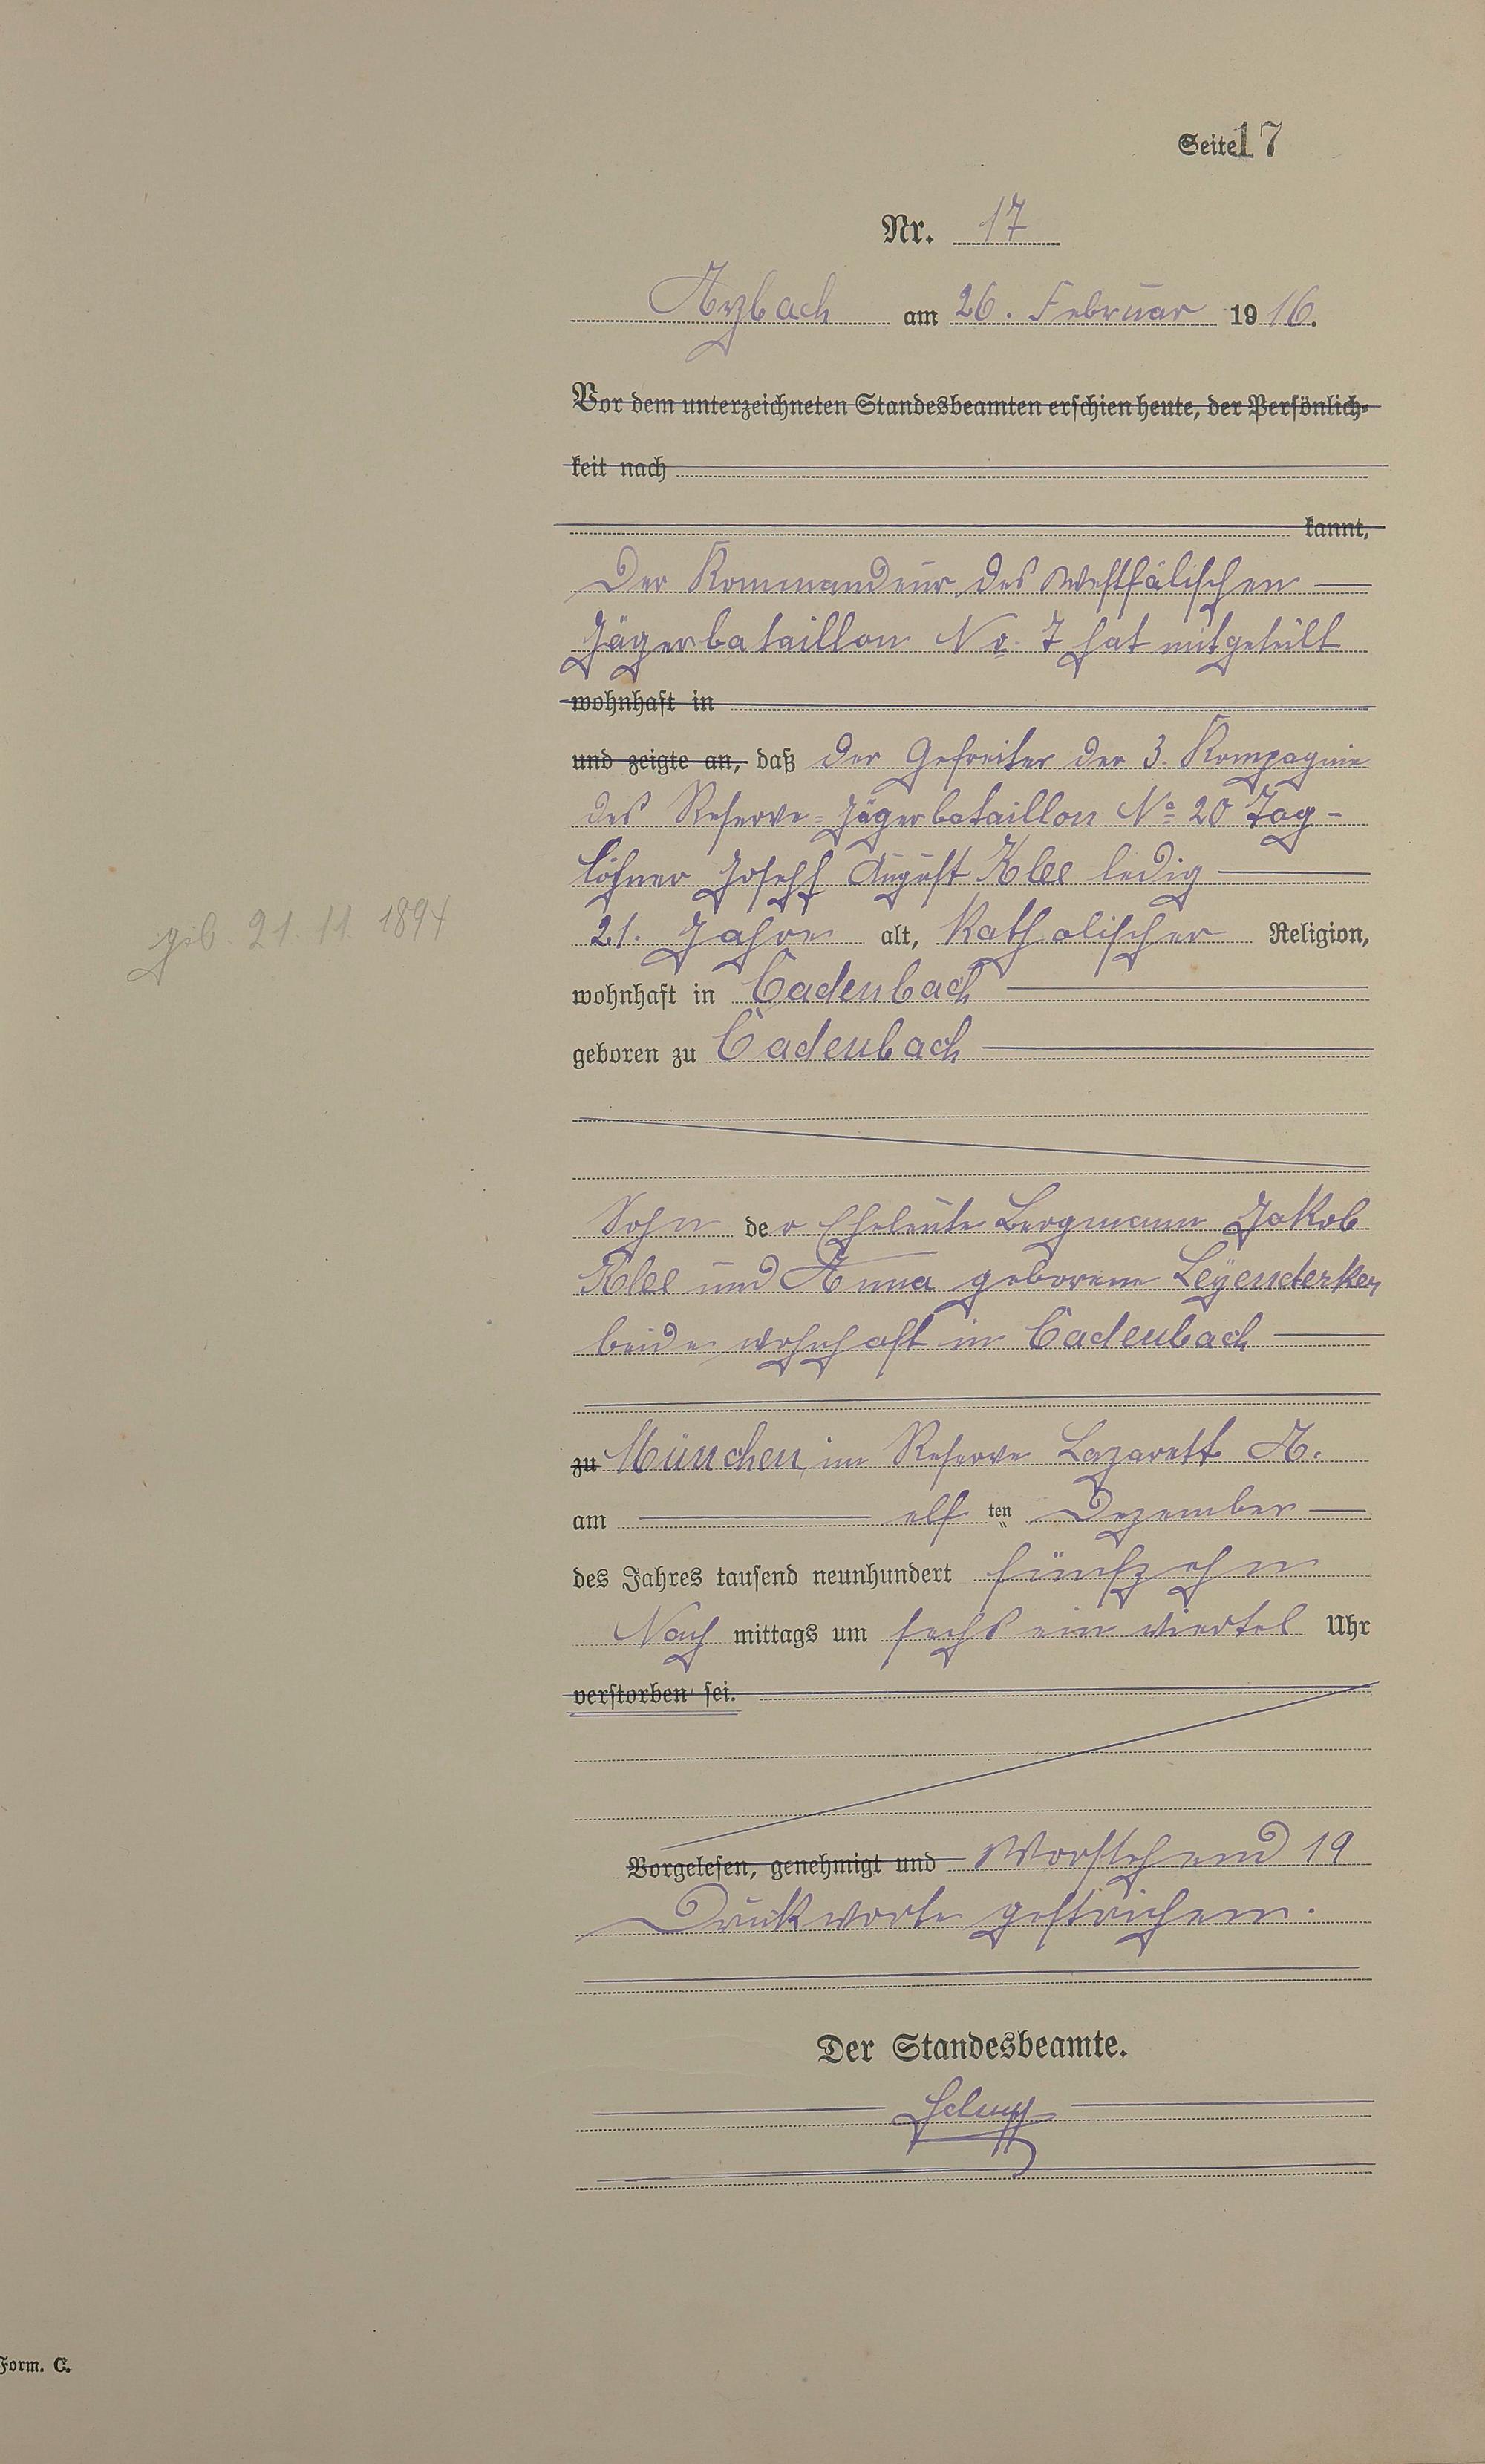 Seite 17
Nr. 17
Arzbach am 26. Februar 1916.
Vor dem unterzeichneten Standesbeamten erschien heute, der Persönlich-
keit nach
kannt,
Der Kommandeur des Westfälischen
Jägerbataillon No. 7 hat mitgeteilt
wohnhaft in
und zeigte an, daß der Gefreiter der 3. Kompagnie
des Reserve-Jägerbataillon No 20 Tag-
löhner Joseph August Klee ledig
geb. 21. 11. 1894
21. Jahre alt, Katholischer Religion,
wohnhaft in Cadenbach
geboren zu Cadenbach
Sohn der Eheleute Bergmann Jakob
Klee und Anna geborene Leyendecker
beide wohnhaft in Cadenbach
zu München, im Reserve Lazarett A.
am elf ten Dezember
des Jahres tausend neunhundert fünfzehn
Nach mittags um sechs ein viertel Uhr
verstorben sei.
Vorgelesen, genehmigt und Vorstehend 19
Druckworte gestrichen.
Der Standesbeamte.
Form. C.